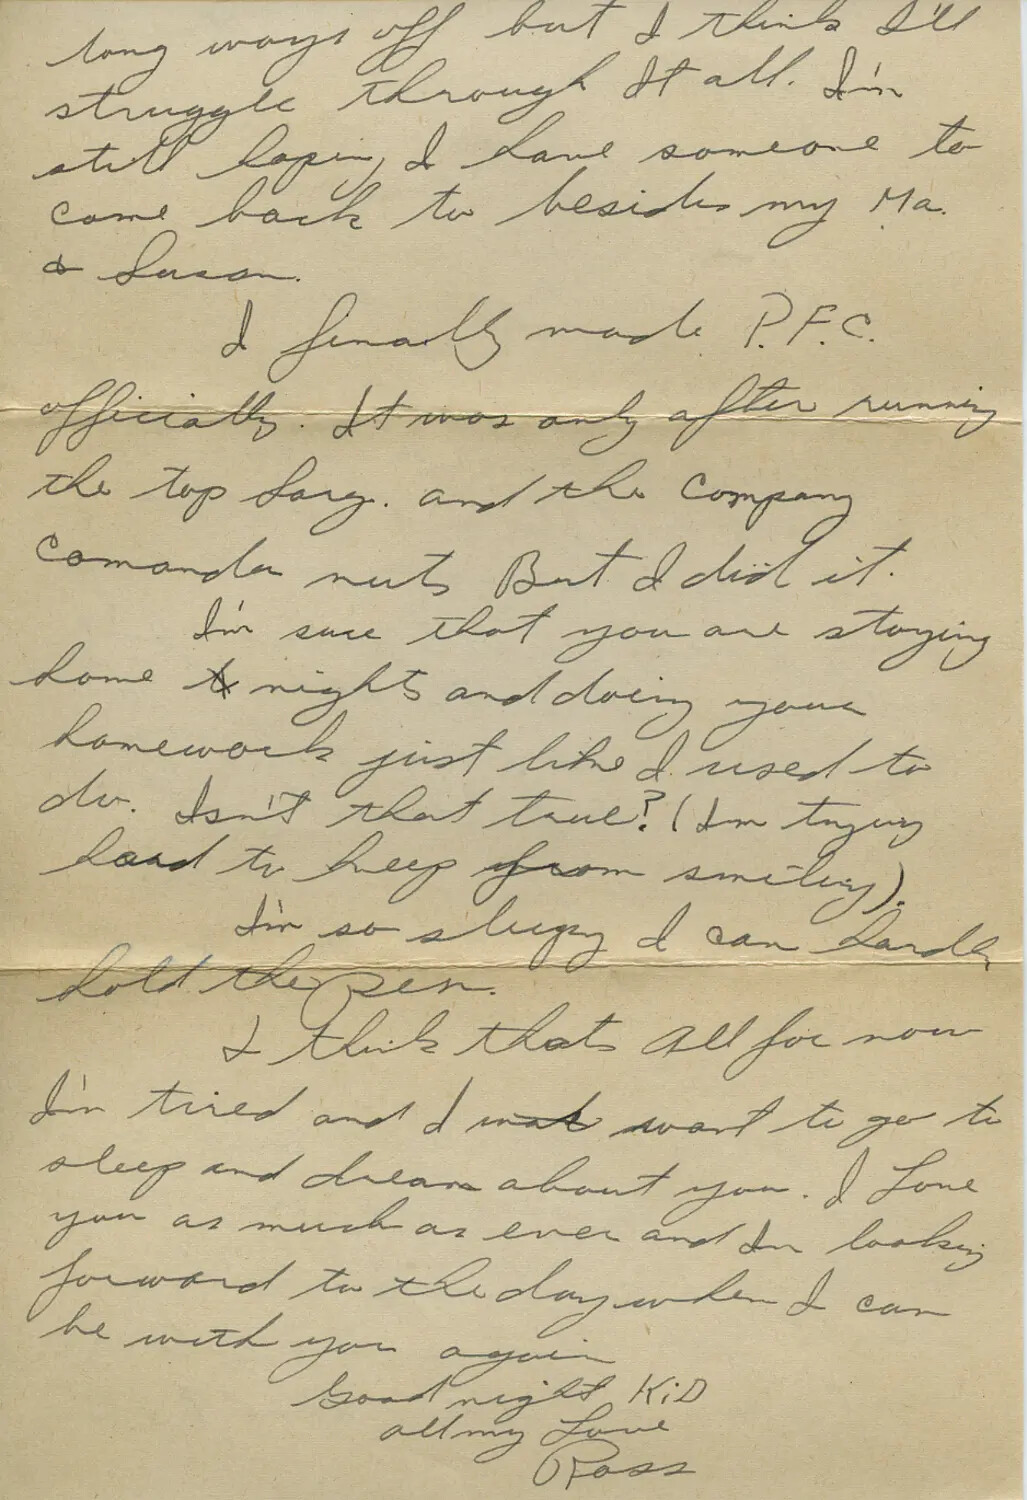 long ways off but I think I'll
struggle through It all. I'm
still hoping I have someone to
come back to besides my Ma.
& Susan.
I finally made P.F.C.
officially. It was only after running
the top Sarg. and the Company
comander nuts But I did it.
I'm sure that you are staying
home nights and doing your
homework just like I used to
do. Isn't that true? (Im trying
hard to keep from smiling).
I'm so sleepy I can hardly
hold the pen.
I think thats all for now
I'm tired and I want to go to
sleep and dream about you. I Love
you as much as ever and Im looking
forward to the day when I can
be with you again
Good night KiD
all my Love
Ross